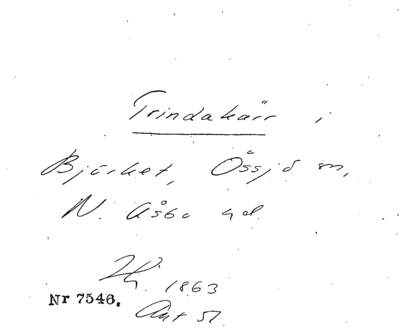 Trindakärr i
Björket, Össjö sn,
N. Åsbo hd.
1863
Nr 7546. Akt 51.